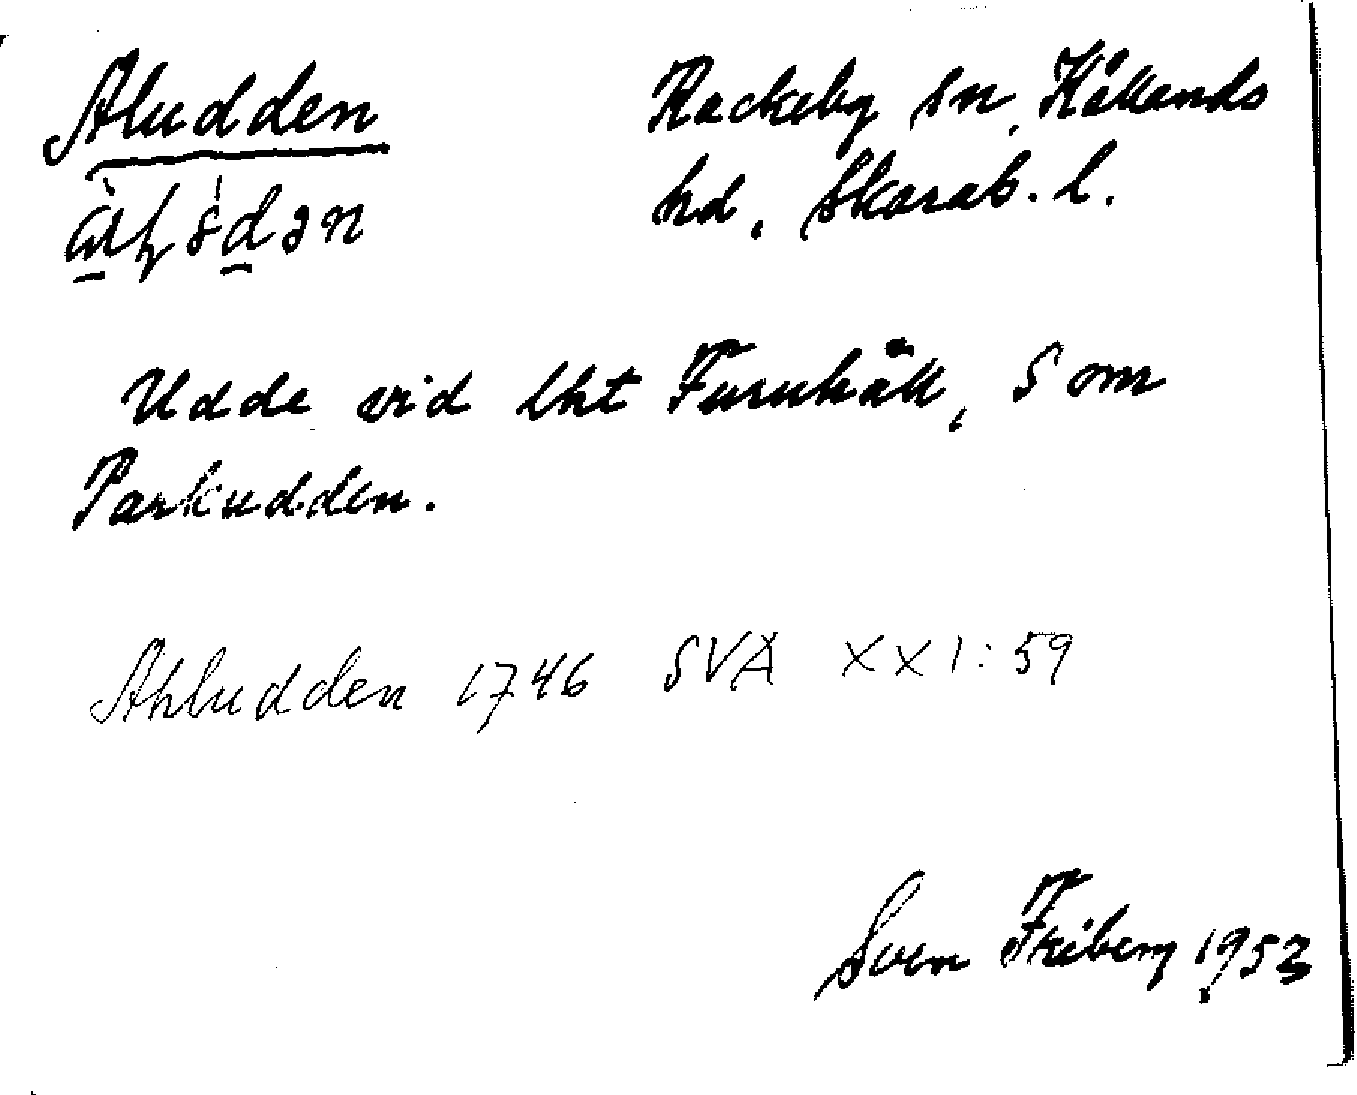 Aludden
Rackeby sn, Kållands
hd, Skarab. l.
Udde vid lht Furuhäll, S om
Parkudden.
Ahludden 1746 SVA XXI:59
Sven Friberg 1953